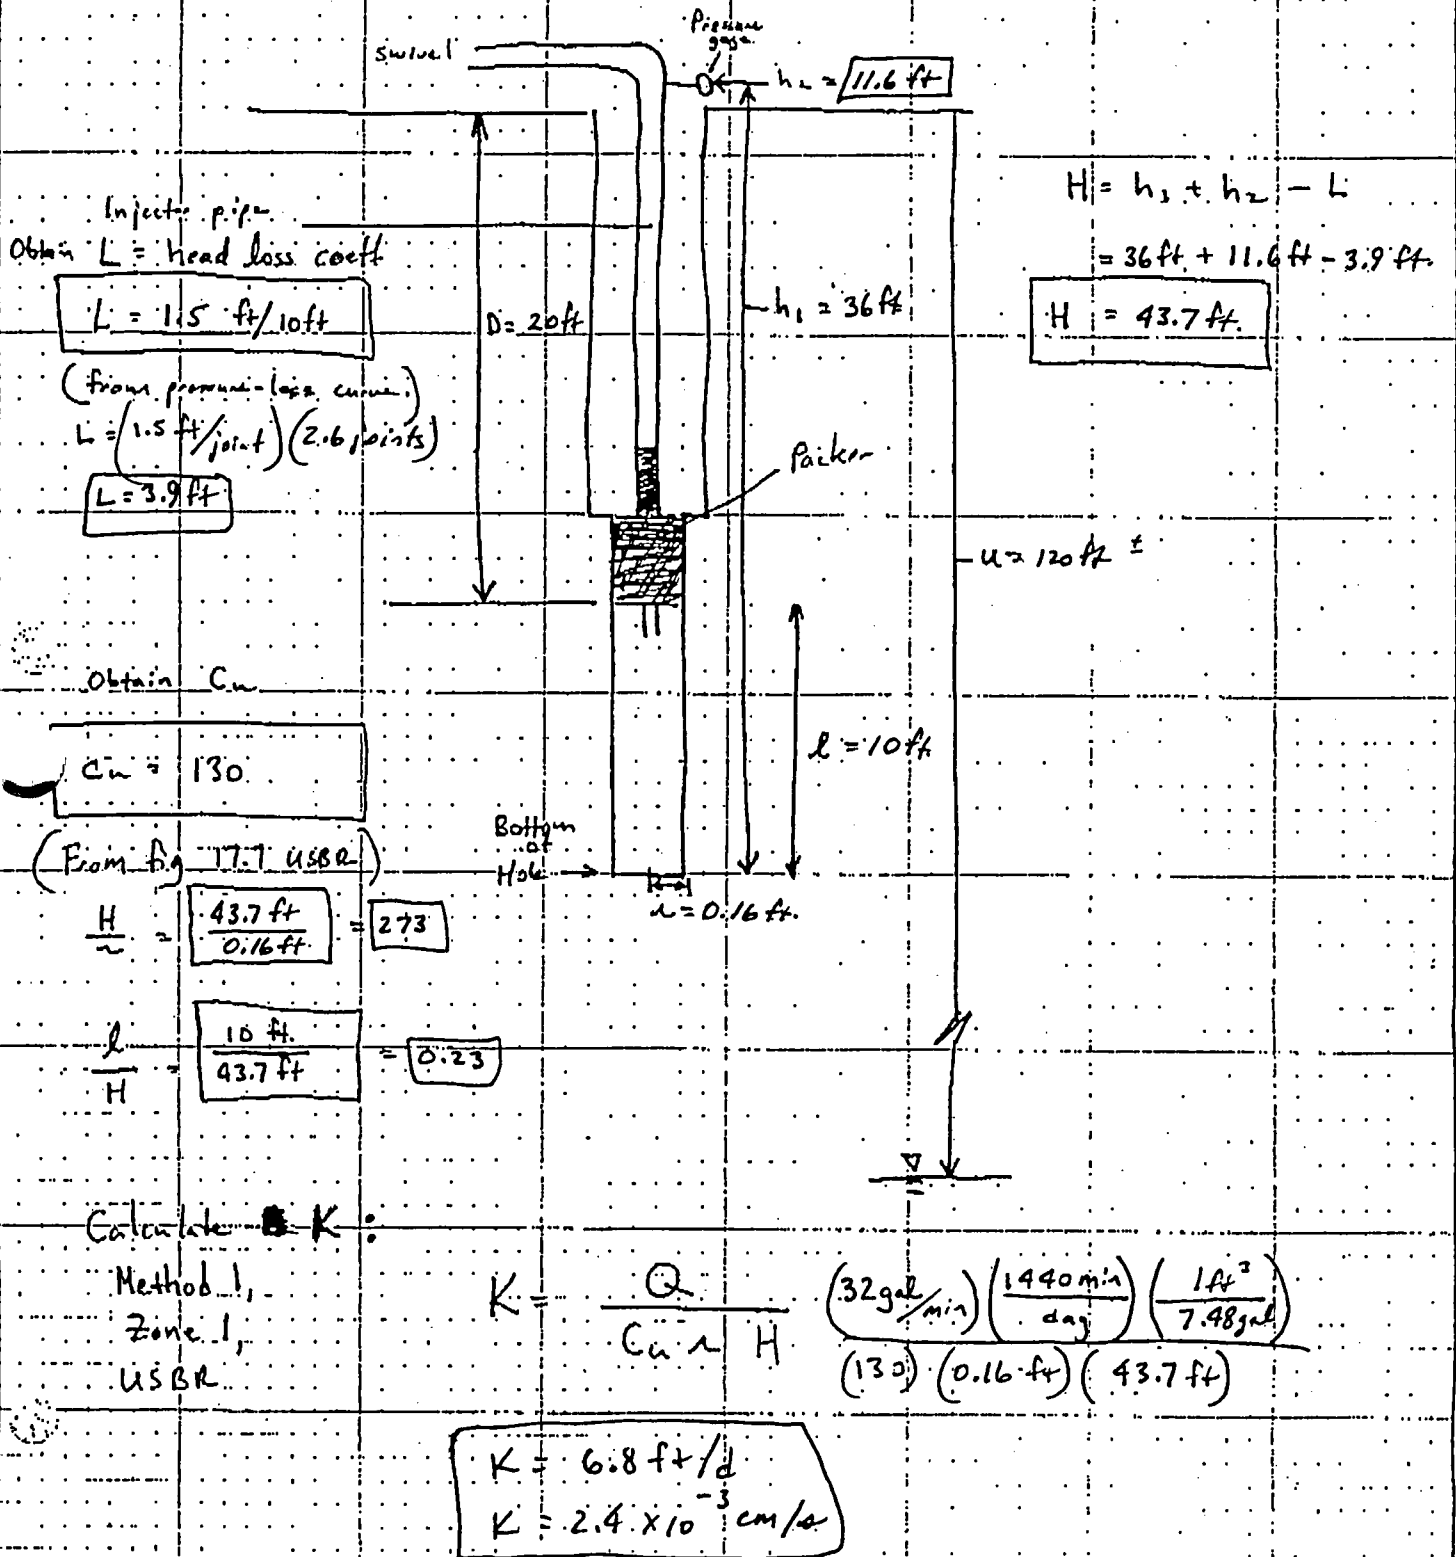 Pressure
gage
swivel
h₂ = 11.6 ft
H = h₁ + h₂ - L
= 36 ft + 11.6 ft - 3.9 ft
H = 43.7 ft.
Injector pipe
Obtain L = head loss coeff
L = 1.5 ft/10ft
(from pressure-loss curve)
L = (1.5 ft/joint)(2.6 joints)
L = 3.9 ft
D = 20 ft
h₁ = 36 ft
Packer
u ≈ 120 ft ±
Obtain Cu
Cu = 130
(From fig 17.7 USBR)
l = 10 ft
Bottom
of
Hole
r = 0.16 ft.
H/r = 43.7 ft / 0.16 ft = 273
l/H = 10 ft. / 43.7 ft = 0.23
Calculate K :
Method 1,
Zone 1,
USBR
K = Q / Cu r H
(32 gal/min) (1440 min / day) (1 ft³ / 7.48 gal)
(130) (0.16 ft) (43.7 ft)
K = 6.8 ft/d
K = 2.4 x 10⁻³ cm/s